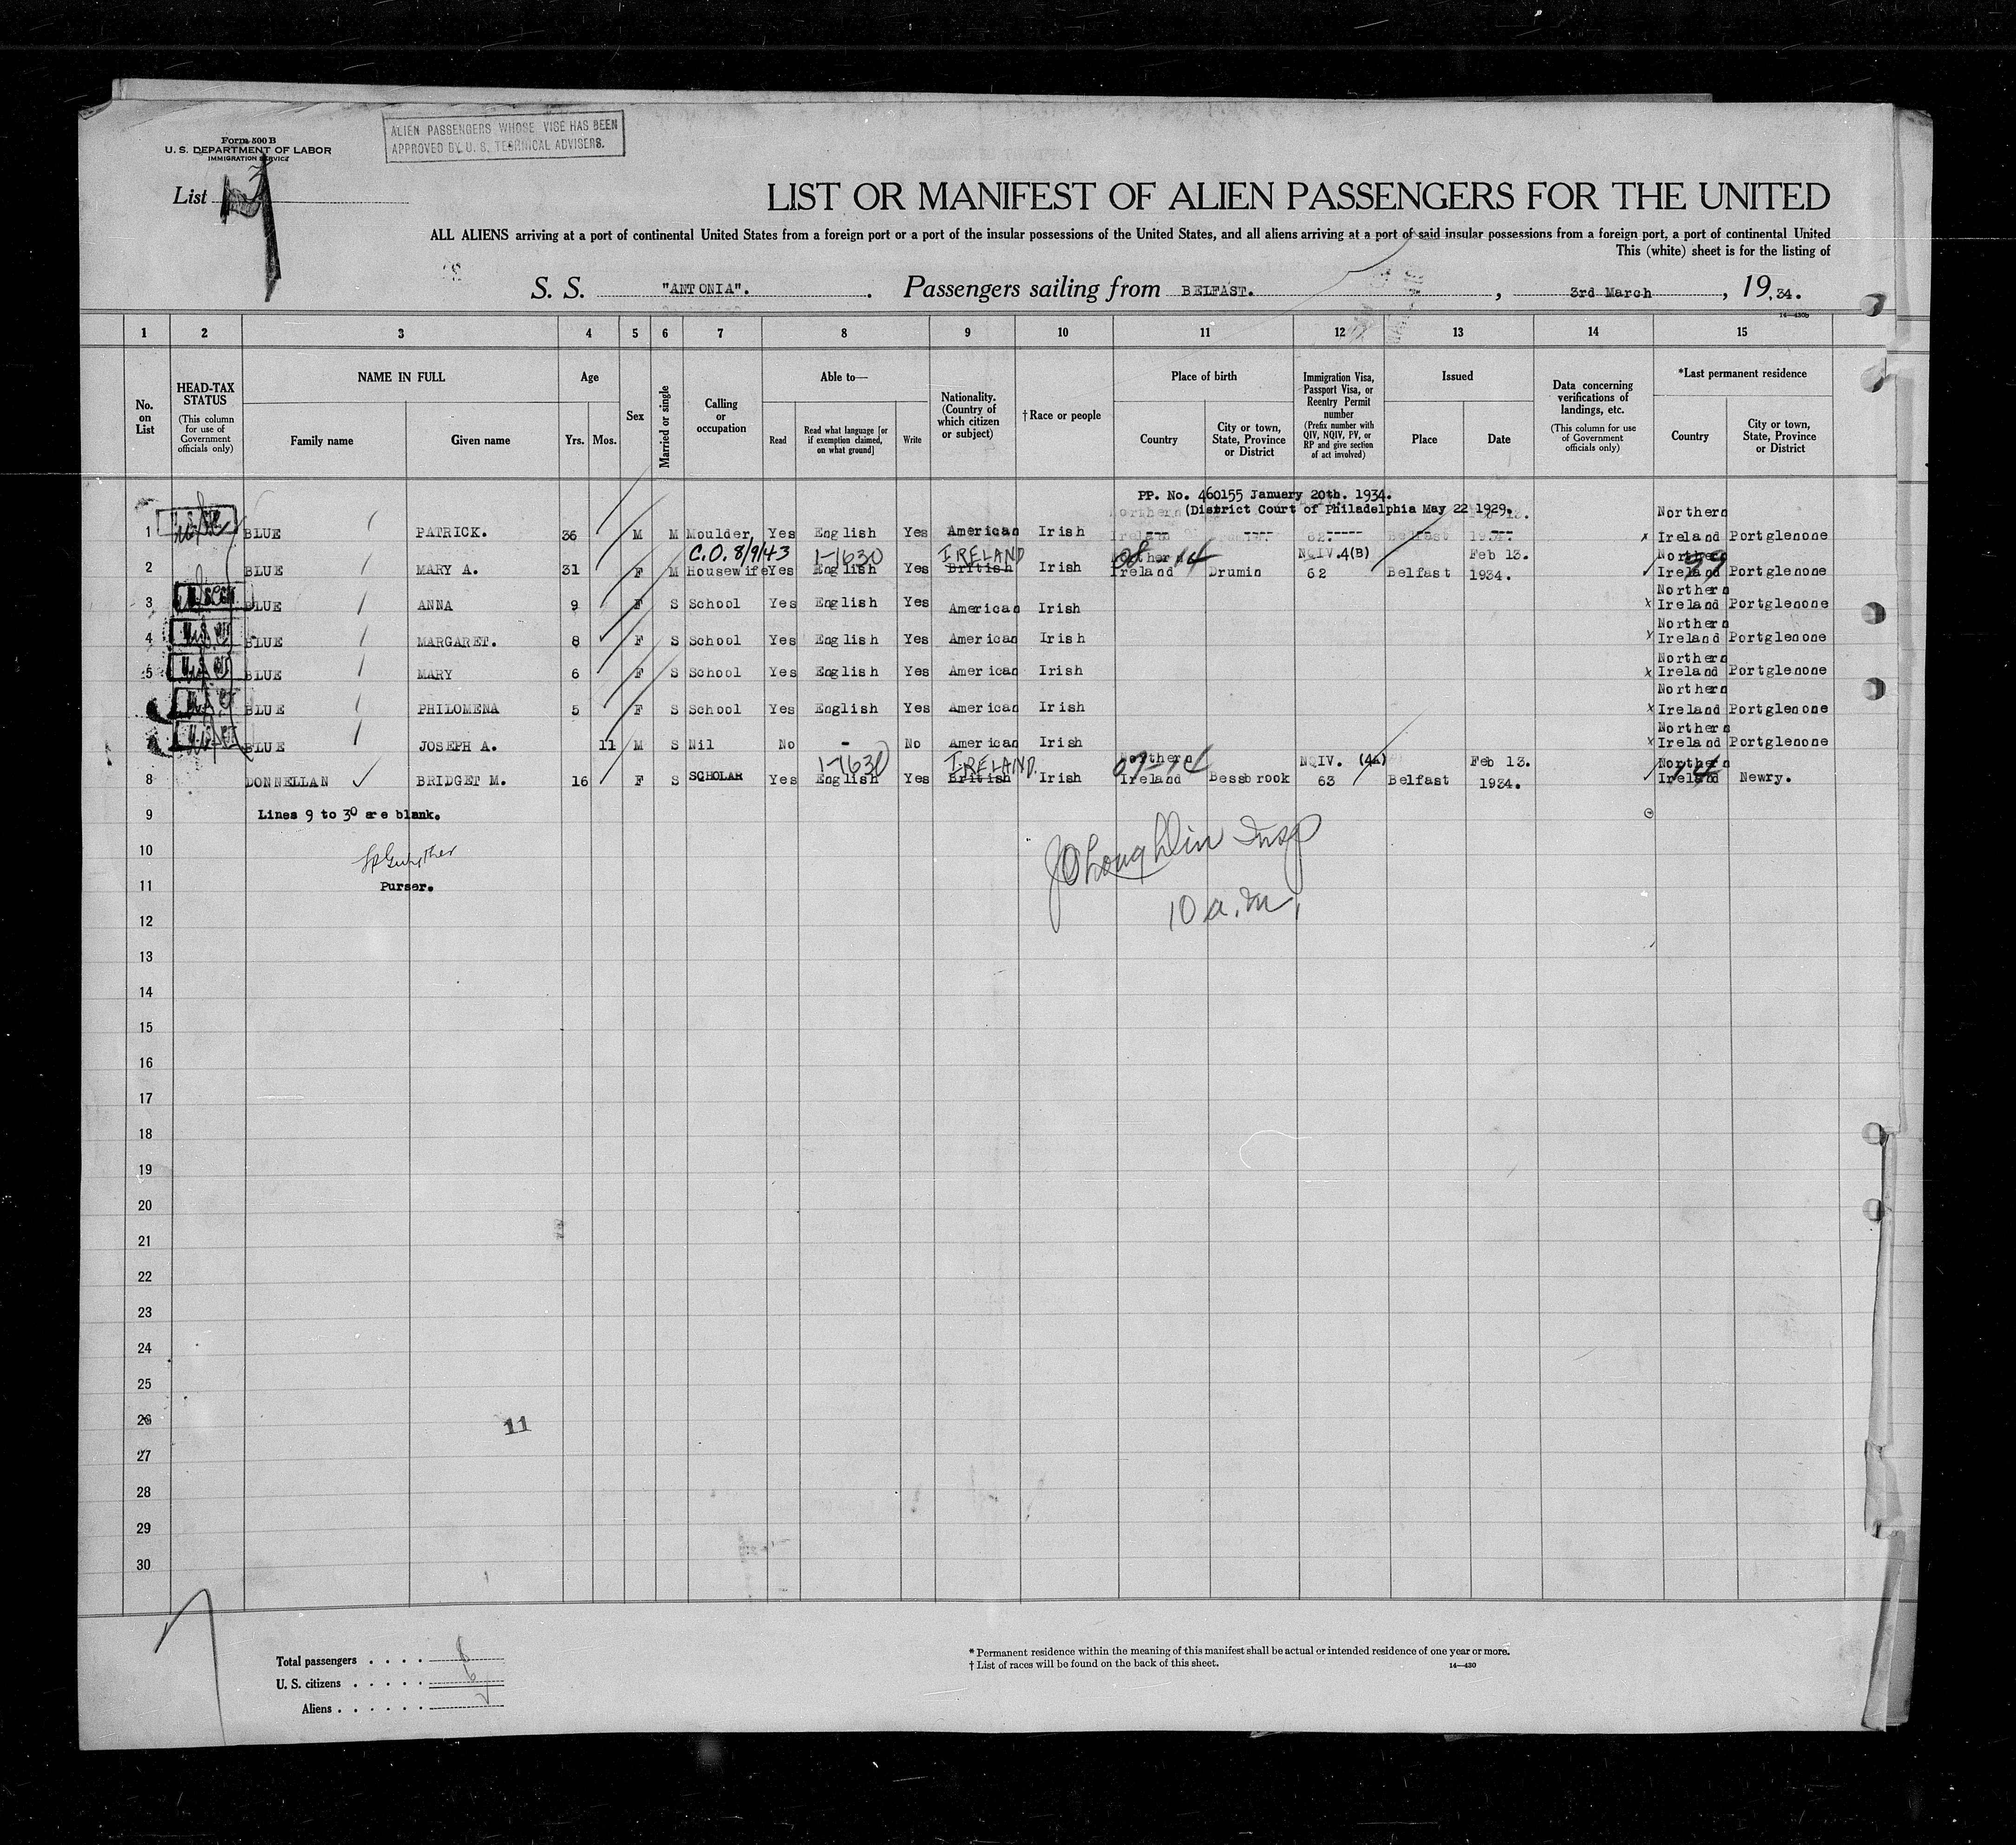 Form 500 B
U. S. DEPARTMENT OF LABOR
IMMIGRATION SERVICE
ALIEN PASSENGERS WHOSE VISE HAS BEEN
APPROVED BY U. S. TECHNICAL ADVISERS.
List
LIST OR MANIFEST OF ALIEN PASSENGERS FOR THE UNITED
ALL ALIENS arriving at a port of continental United States from a foreign port or a port of the insular possessions of the United States, and all aliens arriving at a port of said insular possessions from a foreign port, a port of continental United
This (white) sheet is for the listing of
S. S. "ANTONIA". Passengers sailing from BELFAST. , 3rd March , 19,34.
14—430b
1 2 3 4 5 6 7 8 9 10 11 12 13 14 15
No. on List
HEAD-TAX STATUS (This column for use of Government officials only)
NAME IN FULL
Family name Given name
Age
Yrs. Mos.
Sex
Married or single
Calling or occupation
Able to—
Read
Read what language [or if exemption claimed, on what ground]
Write
Nationality. (Country of which citizen or subject)
†Race or people
Place of birth
Country
City or town, State, Province or District
Immigration Visa, Passport Visa, or Reentry Permit number (Prefix number with QIV, NQIV, PV, or RP and give section of act involved)
Issued
Place Date
Data concerning verifications of landings, etc. (This column for use of Government officials only)
*Last permanent residence
Country
City or town, State, Province or District
PP. No. 460155 January 20th. 1934.
(District Court of Philadelphia May 22 1929.
1 BLUE PATRICK. 36 M M Moulder Yes English Yes American Irish Northern Ireland Portglenone
C.O. 8/9/43 1-1630 IRELAND 08-14
2 BLUE MARY A. 31 F M Housewife Yes English Yes British Irish Northern Ireland Drumin NQIV.4(B) 62 Belfast Feb 13. 1934. Northern Ireland 99 Portglenone
3 BLUE ANNA 9 F S School Yes English Yes American Irish Northern Ireland Portglenone
4 BLUE MARGARET. 8 F S School Yes English Yes American Irish Northern Ireland Portglenone
5 BLUE MARY 6 F S School Yes English Yes American Irish Northern Ireland Portglenone
BLUE PHILOMENA 5 F S School Yes English Yes American Irish Northern Ireland Portglenone
BLUE JOSEPH A. 11 M S Nil No - No American Irish Northern Ireland Portglenone
1-1630 IRELAND. 07-14
8 DONNELLAN BRIDGET M. 16 F S SCHOLAR Yes English Yes British Irish Northern Ireland Bessbrook NQIV. (4A) 63 Belfast Feb 13. 1934. Northern Ireland 14 Newry.
9 Lines 9 to 30 are blank.
10
11 Purser.
JO Loughlin Insp
10 a.m.
12
13
14
15
16
17
18
19
20
21
22
23
24
25
26
11
27
28
29
30
Total passengers . . . . 8
U. S. citizens . . . . . 6
Aliens . . . . . . 2
* Permanent residence within the meaning of this manifest shall be actual or intended residence of one year or more.
† List of races will be found on the back of this sheet.
14—430